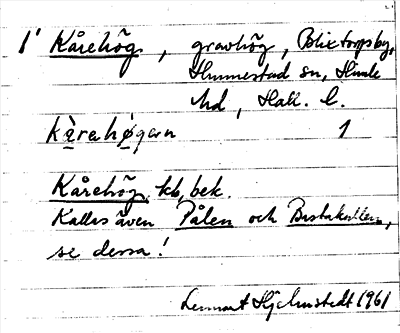 1' Kårehög, gravhög, Blixtorpsby,
Hunnestad sn, Himle
hd, Hall. l.
kàrahø̀gən 1
Kårehög. kb, bek.
Kallas även Pålen och Bastakullen,
se dessa!
Lennart Hjelmstedt 1961